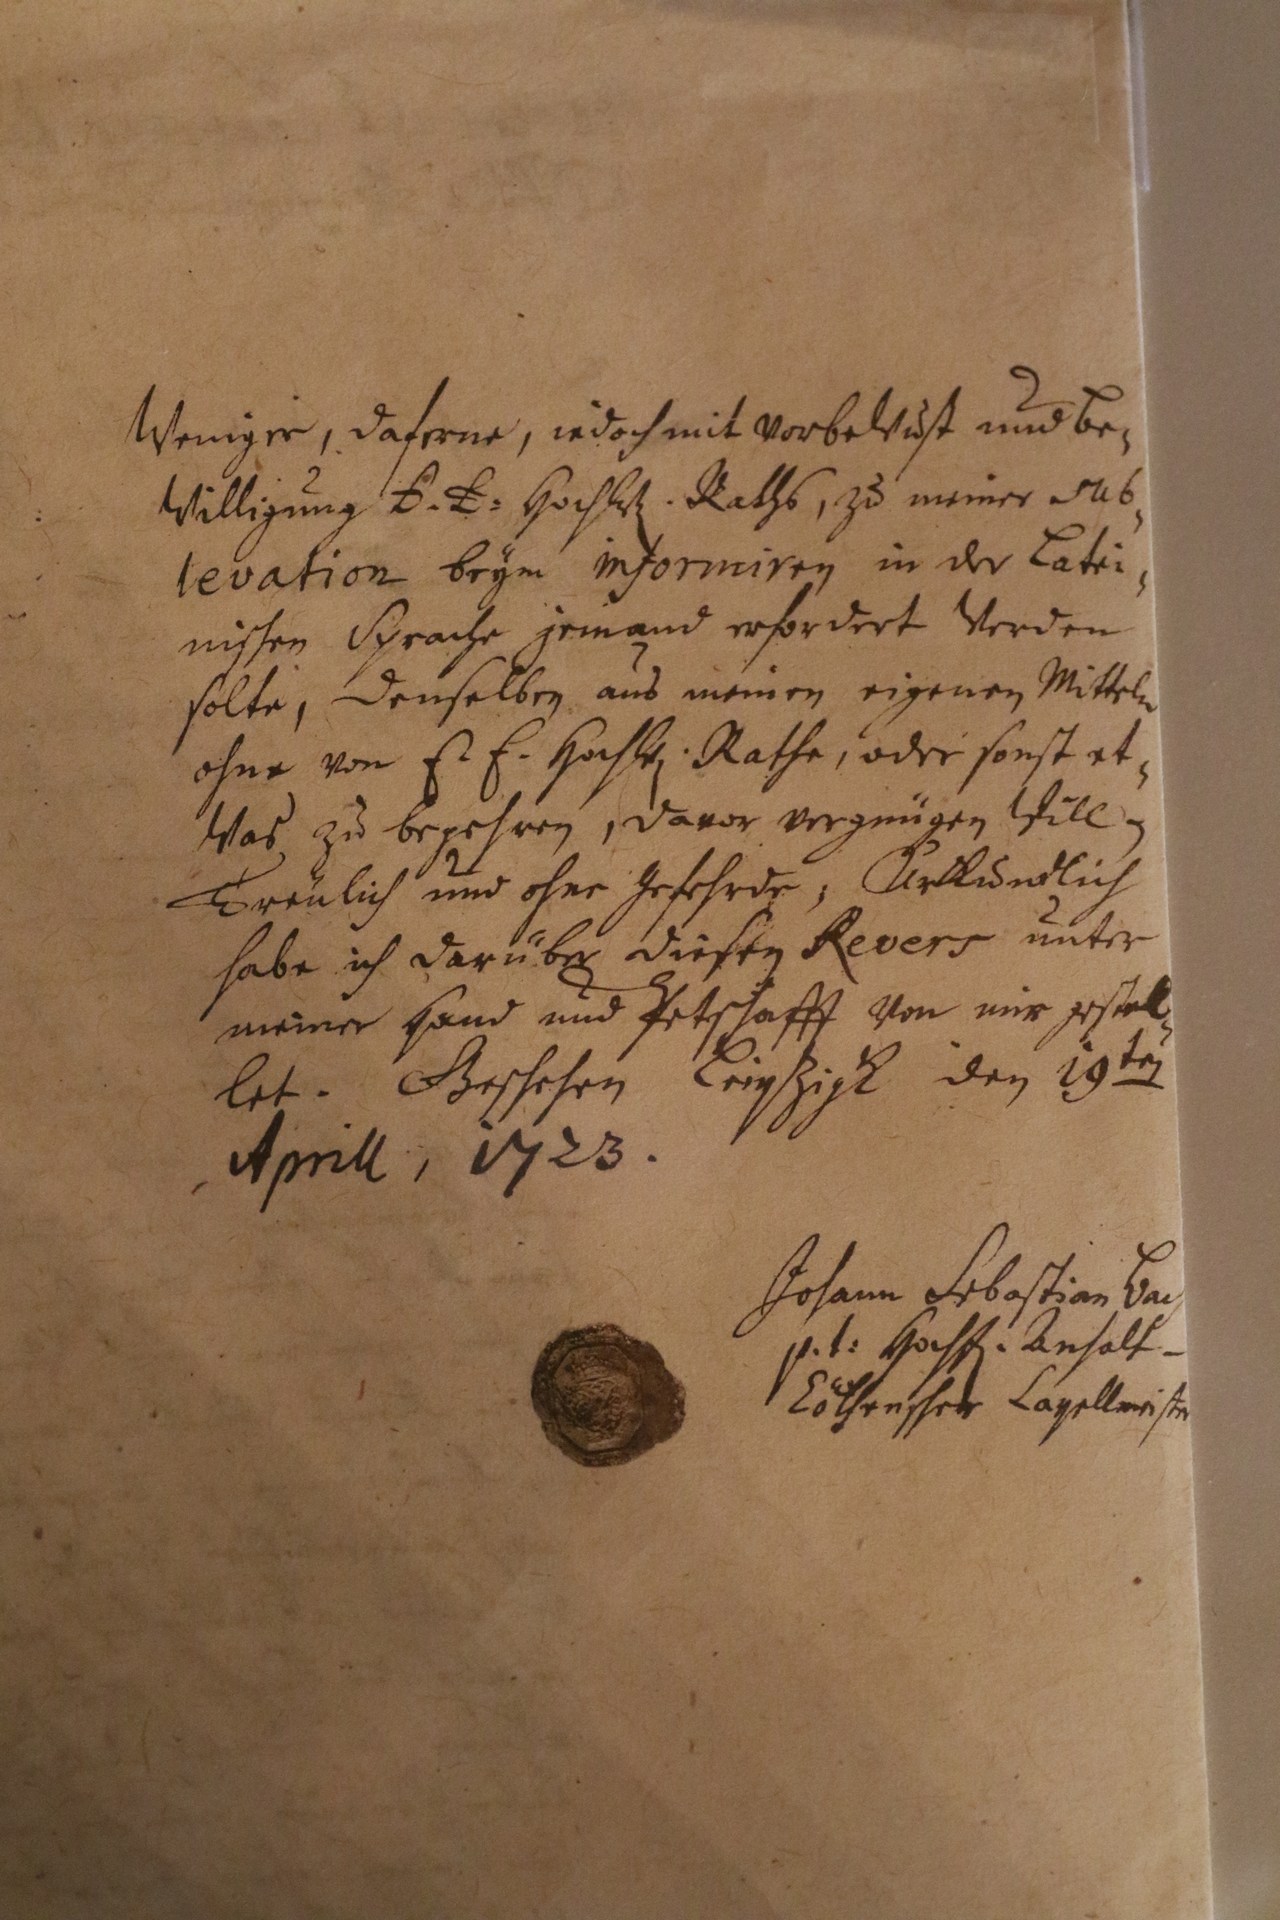 Weniger, daferne, iedoch mit Vorbewust und Be-
willigung E. E. Hochw. Raths, zu meiner sub-
levation beÿm informiren in der Latei-
nischen Sprache jemand erfordert werden
solte, denselben aus meinen eigenen Mitteln
ohne von E. E. Hochw. Rathe, oder sonst et-
was zu begehren, davor vergnügen will
Treülich und ohne Gefehrde; Uhrkundlich
habe ich darüber diesen Revers unter
meiner Hand und Petschafft von mir gestel-
let. Geschehen Leipzigk den 19ten
Aprill, 1723.
Johann Sebastian Bac
p. t: Hochf. Anhalt-
Cöthenscher Capellmeister